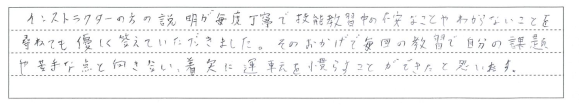 インストラクターの方の説明が毎度丁寧で技能教習中の不安なことやわからないことを
尋ねても優しく答えていただきました。そのおかげで毎回の教習で自分の課題
や苦手な点と向き合い、着実に運転を慣らすことができたと思います。